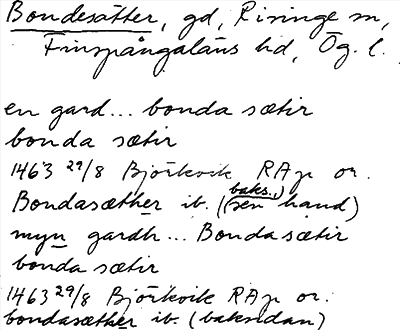 Bondesätter, gd, Risinge sn,
Finspångaläns hd, Ög. l.
en gard... bonda sætir
bonda sætir
1463 29/8 Björkvik RAp or.
Bondasæther ib. (baks., sen hand)
myn gardh... Bonda sætir
bonda sætir
1463 29/8 Björkvik RAp or.
bondasæther ib. (baksidan)